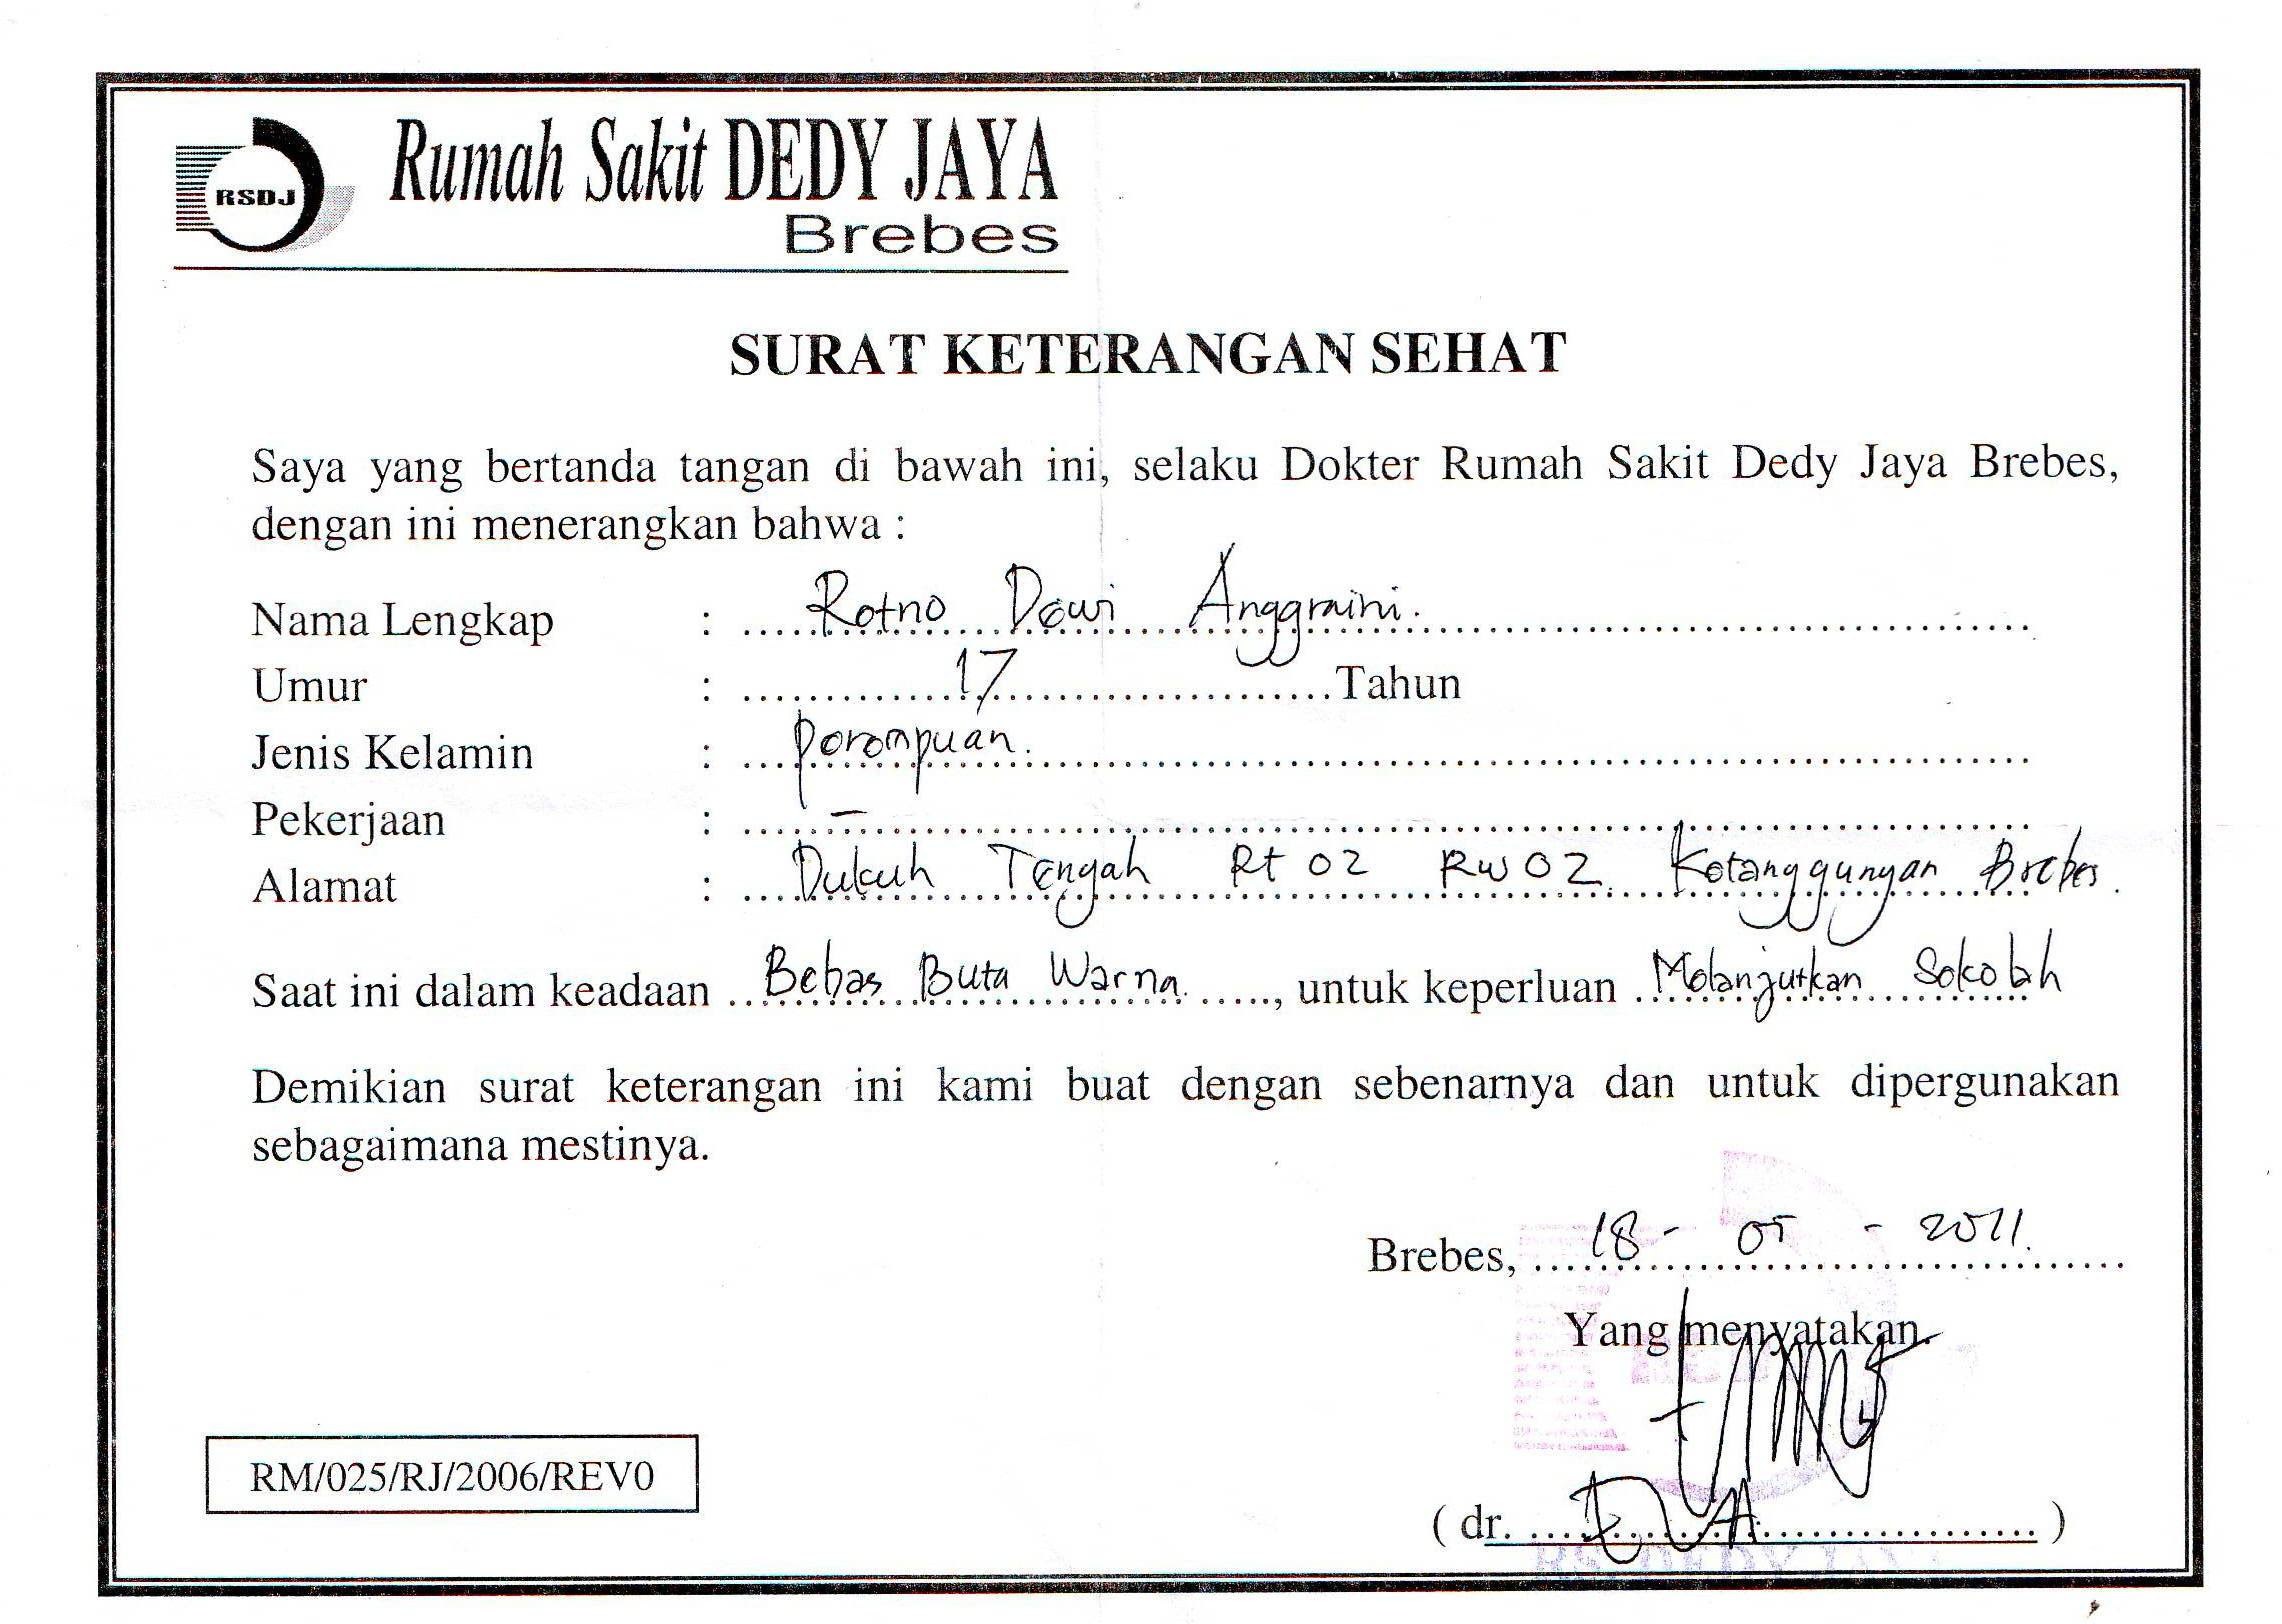 RSDJ
Rumah Sakit DEDY JAYA
Brebes
SURAT KETERANGAN SEHAT
Saya yang bertanda tangan di bawah ini, selaku Dokter Rumah Sakit Dedy Jaya Brebes,
dengan ini menerangkan bahwa :
Nama Lengkap : Retno Dewi Anggraini.
Umur : 17 Tahun
Jenis Kelamin : Perempuan.
Pekerjaan : –
Alamat : Dukuh Tengah Rt 02 RW 02 Ketanggungan Brebes.
Saat ini dalam keadaan Bebas Buta Warna, untuk keperluan Melanjutkan Sekolah
Demikian surat keterangan ini kami buat dengan sebenarnya dan untuk dipergunakan
sebagaimana mestinya.
Brebes, 18 - 05 - 2011.
Yang menyatakan.
RM/025/RJ/2006/REV0
( dr. )